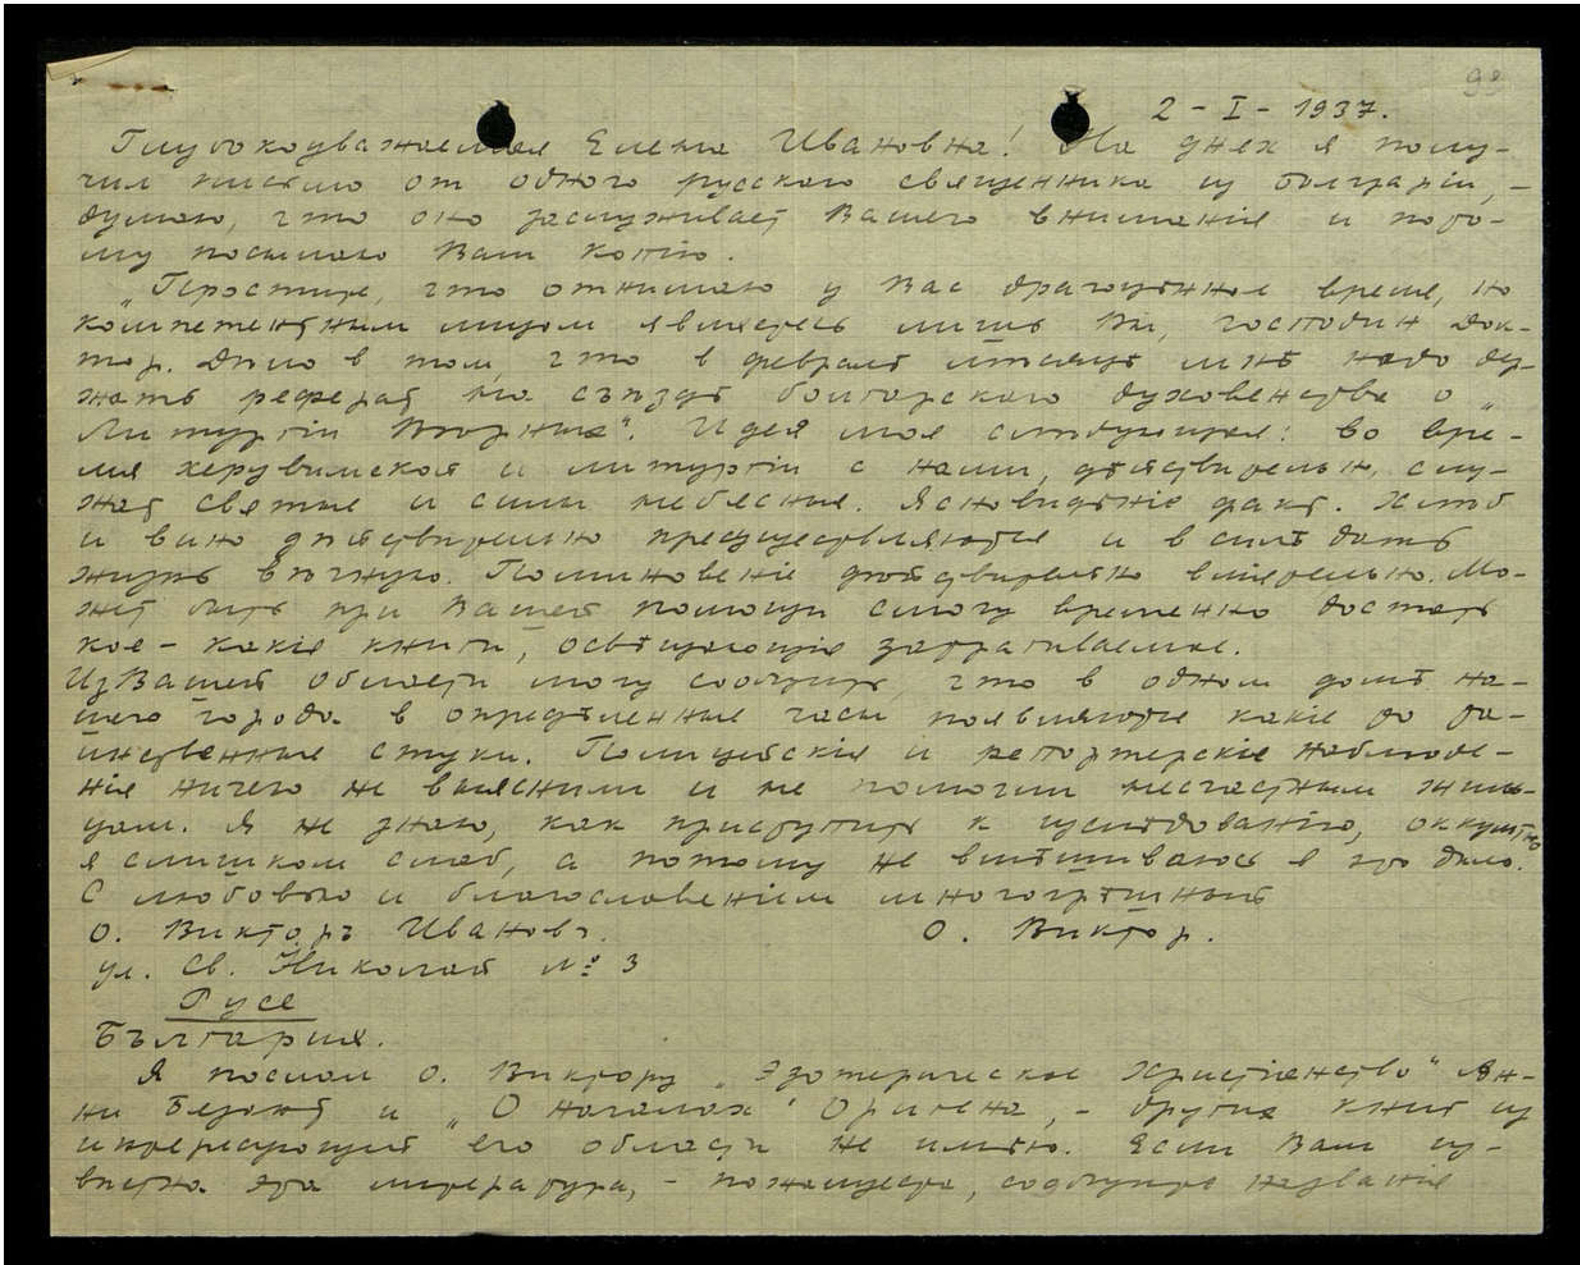 93
2 - I - 1937.
Глубокоуважаемая Елена Ивановна! На днях я полу-
чил письмо от одного русского священника из Болгаріи, -
думаю, что оно заслуживает Вашего вниманія и пото-
му посылаю Вам копію.
„Простите, что отнимаю у Вас драгоцѣнное время, но
компетентным лицом являетесь лишь Вы, господин Док-
тор. Дѣло в том, что в февралѣ мѣсяцѣ мнѣ надо
жать реферат на съѣздѣ болгарского духовенства о „
Литургіи Вѣрных". Идея моя слѣдующая: во вре-
мя херувимской и литургіи с нами, дѣйствительно, слу-
жат святые и силы небесные. Ясновидѣніе факт. Хлѣб
и вино дѣйствительно пресуществляются и в силѣ дать
жизнь вѣчную. Поминовеніе дѣйствительно Мо-
жет быть при Вашей помощи смогу временно достать
кое - какіе книги, освѣщающіе затрагиваемое.
Из Вашей области могу сообщить что в одном домѣ на-
шего города в опредѣленные часы появляются какіе то та-
инственные стуки. Полицейскія и репортерскіе наблюде-
нія ничего не выяснили и не помогли несчастным жиль-
цам. Я не знаю, как приступить к изслѣдованію, оккультно
я слишком слаб, а потому не вмѣшиваюсь в это дѣло.
С любовью и благословеніем многогрѣшный
о. Викторъ Ивановъ. О. Виктор.
ул. Св. Николай № 3
Русе
България.
Я послал о. Виктору „Эзотерическое Христіанство" Ан-
ни Безант и „О Началах" Оригена, - других книг из
интересующей его области не имѣю. Если Вам из-
вѣстна эта литература, - пожалуйста, сообщите названіе